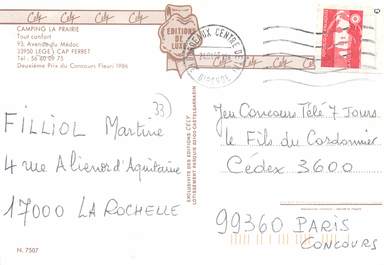 Cely Cely Cely Cely
CAMPING LA PRAIRIE
Tout confort
93, Avenue du Médoc
33950 LEGE-CAP FERRET
Tél : 56 60 09 75
Deuxième Prix du Concours Fleuri 1986
EDITIONS
DE LUXE
BORDEAUX CENTRE DE
GIRONDE
33)
FILLIOL Martine
4 rue Alienor d'Aquitaine
17000 LA ROCHELLE
N. 7507
EXCLUSIVITÉ DES ÉDITIONS CELY
Jeu Concours Télé 7 Jours
le Fils du Cordonnier
Cédex 3600
99360 PARIS
CONCOURS